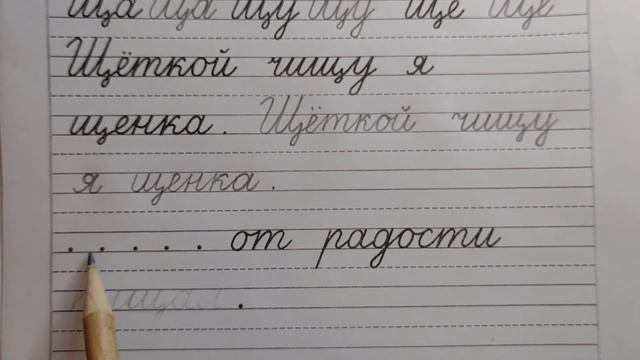 ща ща щу щу ще ще
Щёткой чищу я
щенка. Щёткой чищу
я щенка.
. . . . . от радости
пищал.